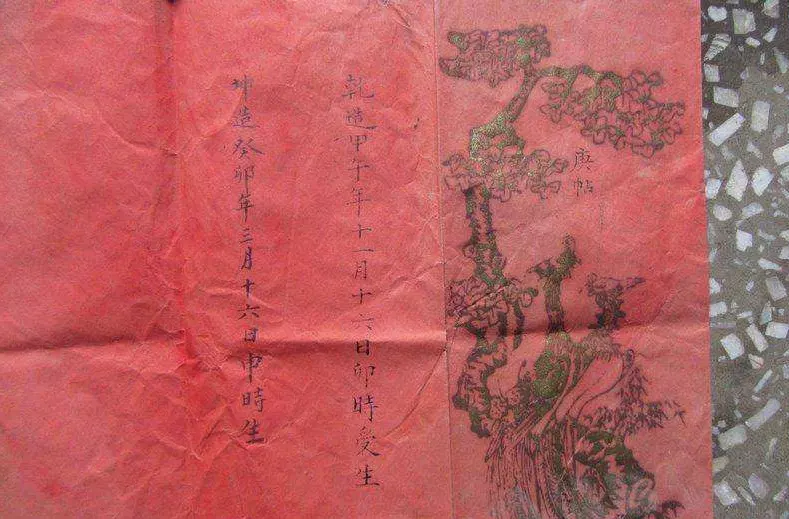 庚帖
乾造甲午年十一月十六日卯時受生
坤造癸卯年三月十六日申時生